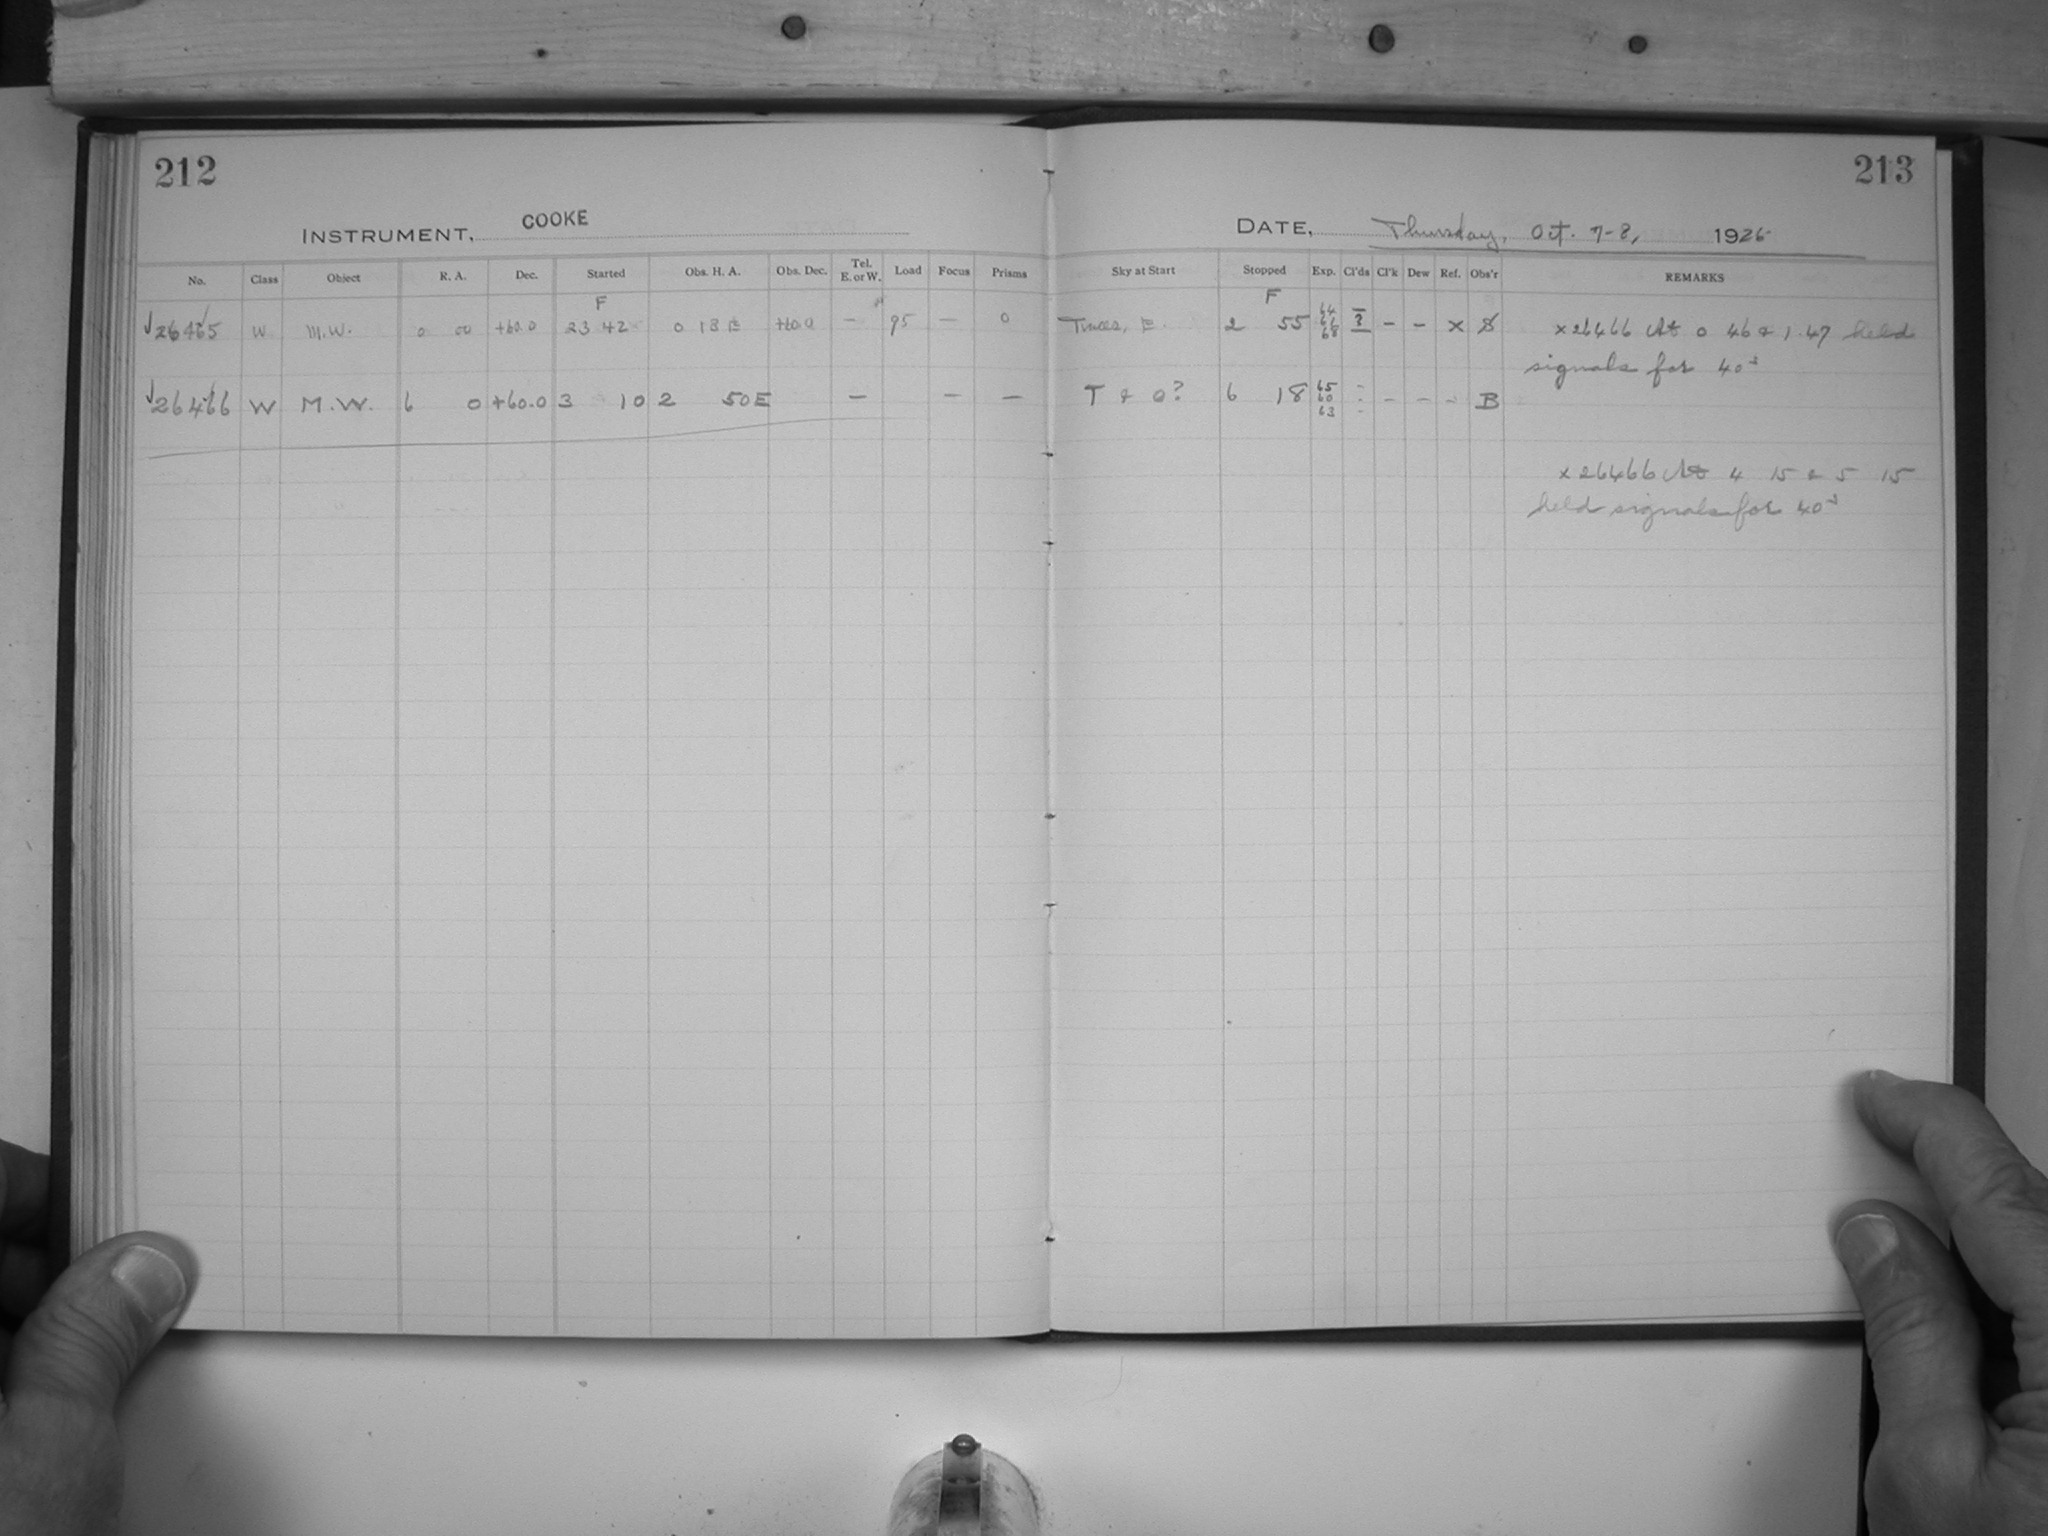 212
213
INSTRUMENT, COOKE
DATE, Thursday, Oct. 7-8, 1926
No. Class Object R. A. Dec. Started Obs. H. A. Obs. Dec. Tel. E. or W. Load Focus Prisms Sky at Start Stopped Exp. Cl'ds Cl'k Dew Ref. Obs'r REMARKS
F F
√26465 W M.W. 0 00 +60.0 23 42 0 18 E +60.0 — 95 — 0 E. 2 55 64 61 68 — ? — – – x S x26466 At 0 46 & 1.47 held
signals for 40s
√26466 W M.W. 6 0 +60.0 3 10 2 50E — — — T & O? 6 18 65 60 63 - - - – – - B
x26466 At 4 15 & 5 15
held signals for 40s